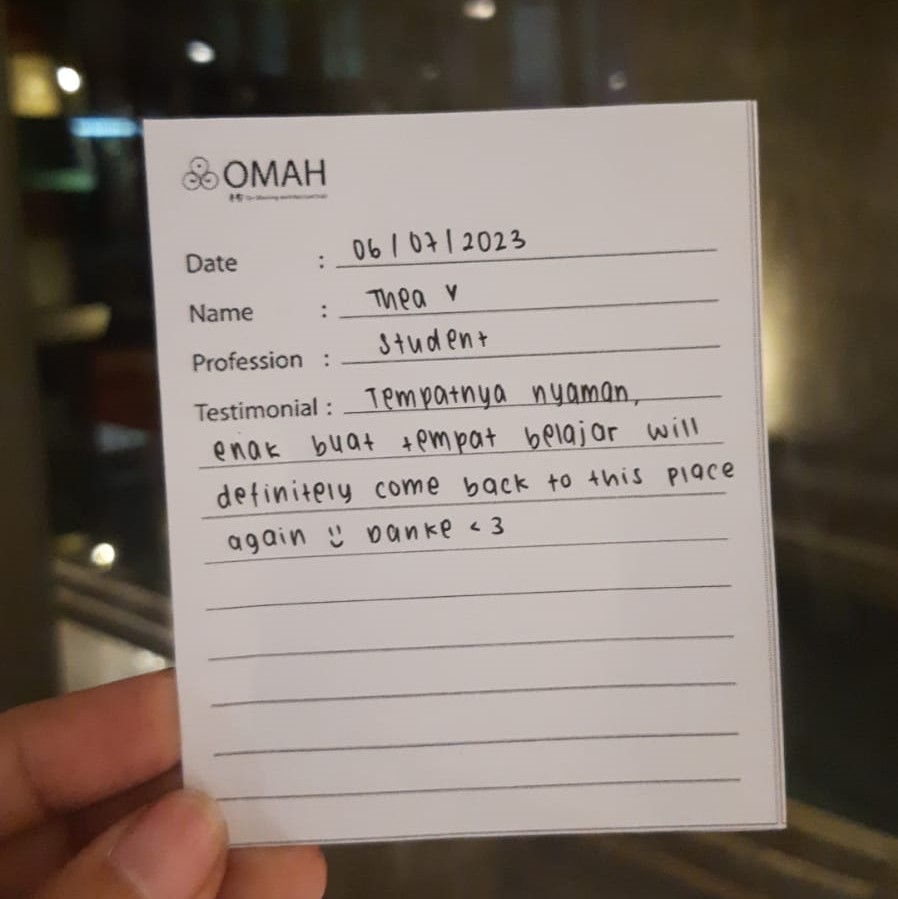 OMAH
Date : 06/07/2023
Name : Thea V
Profession : Student
Testimonial : Tempatnya nyaman,
enak buat tempat belajar will
definitely come back to this place
again :) Danke <3